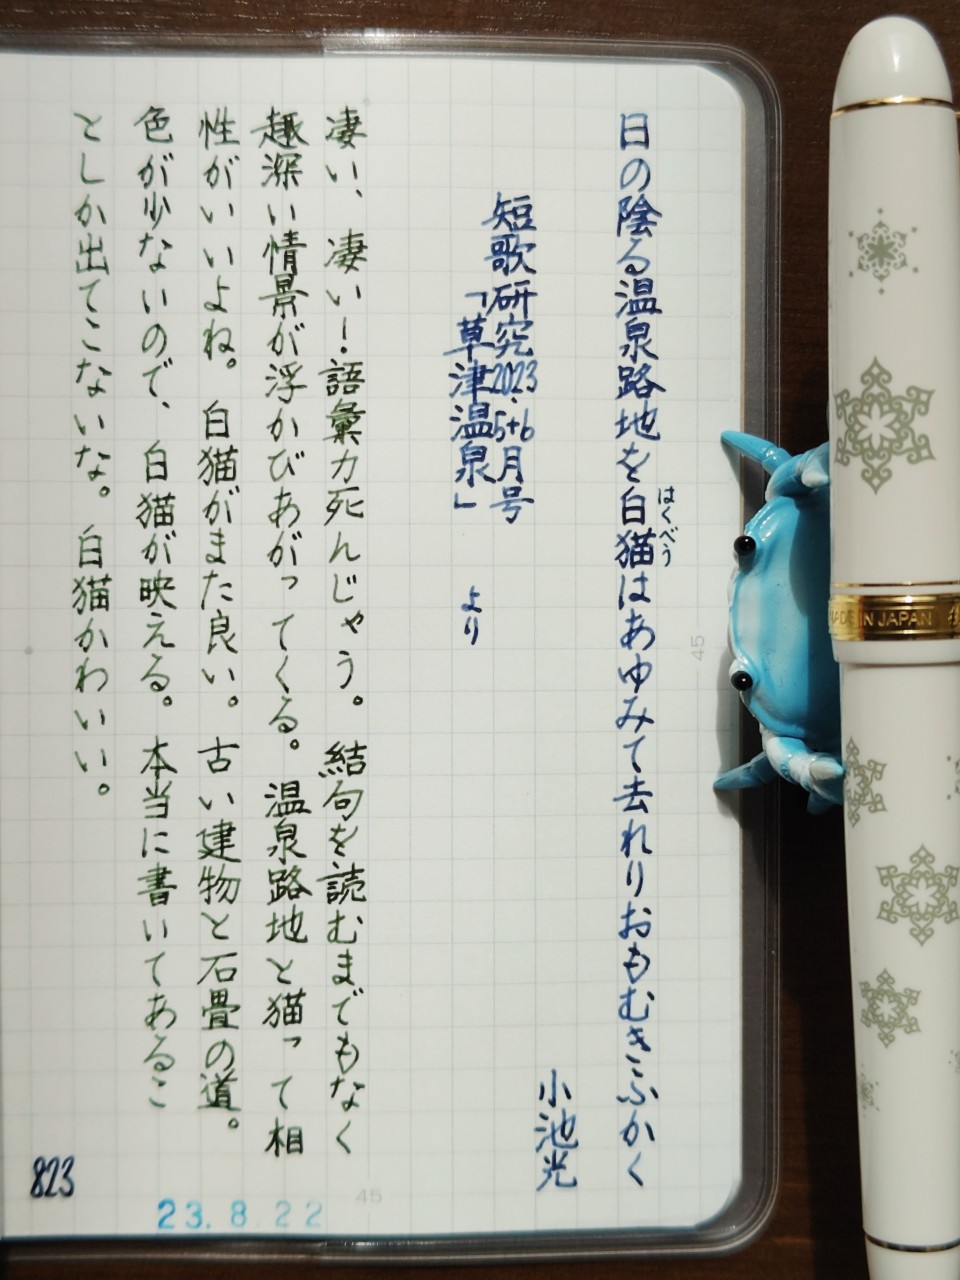 日の陰る温泉路地を白猫はあゆみて去れりおもむきふかく
はくべう
小池光
短歌研究2023.5+6月号
「草津温泉」 より
凄い、凄い！語彙力死んじゃう。結句を読むまでもなく
趣深い情景が浮かびあがってくる。温泉路地と猫って相
性がいいよね。白猫がまた良い。古い建物と石畳の道。
色が少ないので、白猫が映える。本当に書いてあるこ
としか出てこないな。白猫かわいい。
823
23.8.22
45
45
MADE IN JAPAN